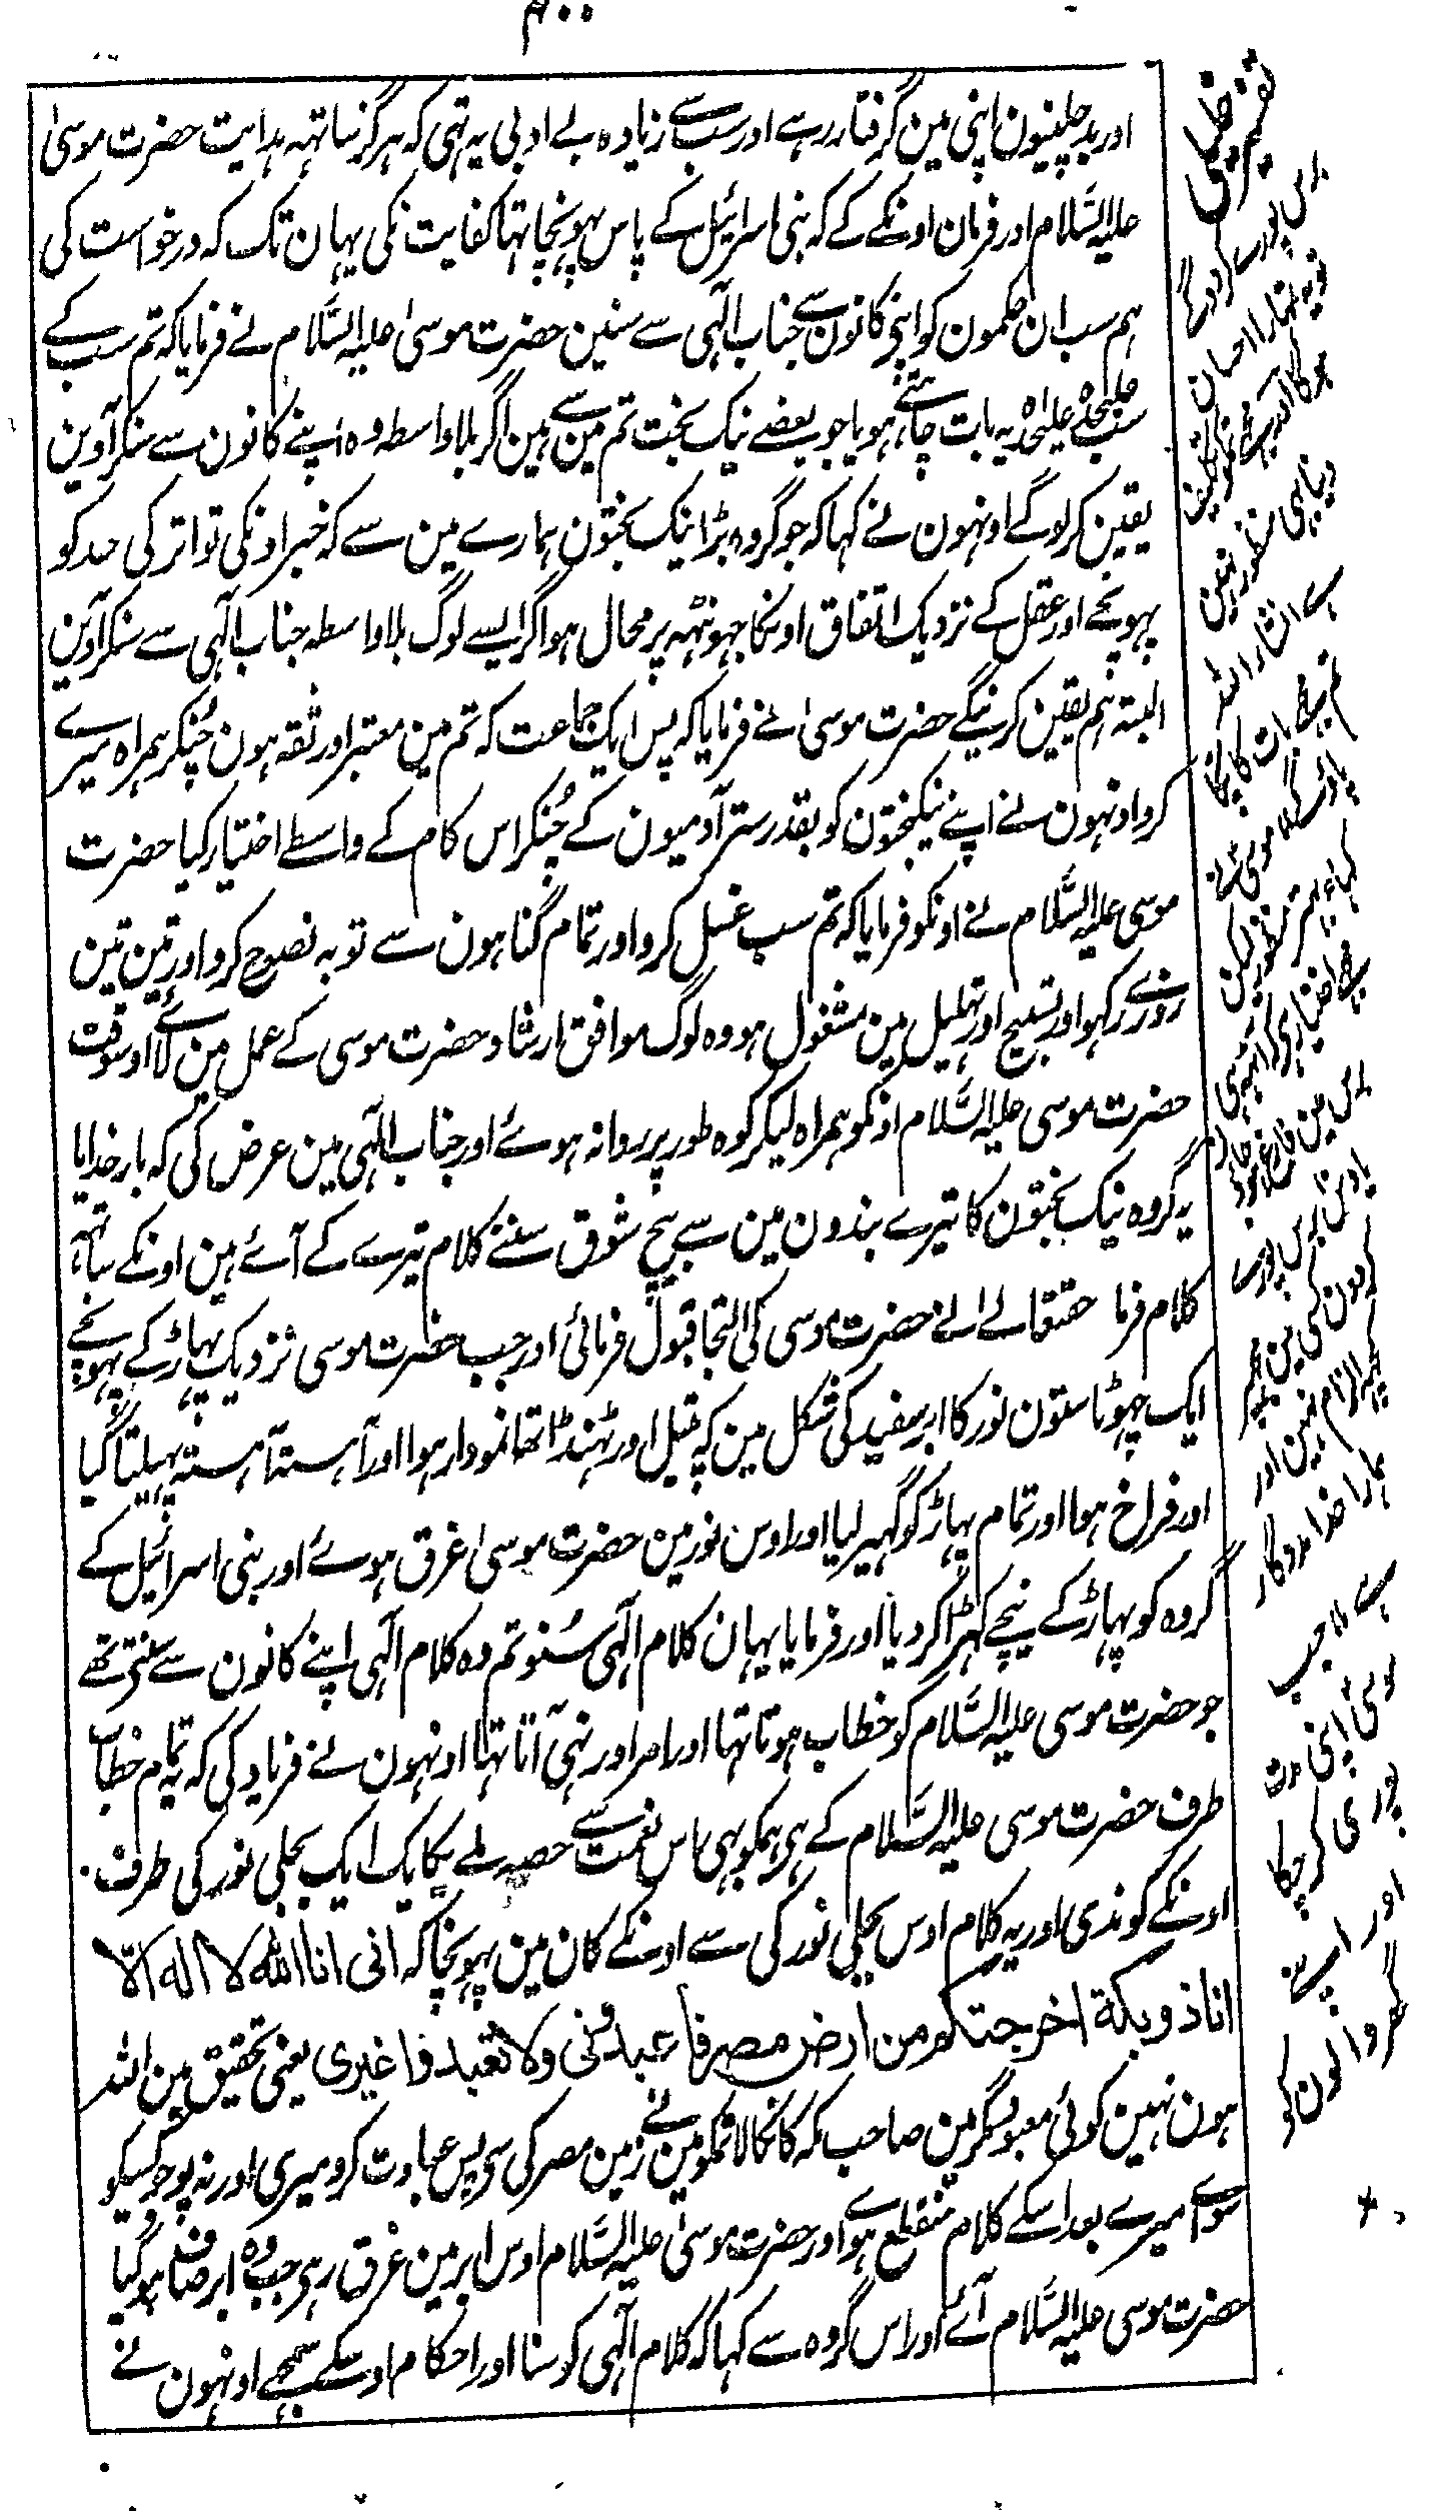 ۴۰۰
اور بدچلنیون اپنی مین گرفتار رہے اور سب سے زیادہ بے ادبی یہ تہی کہ ہرگز ساتہہ ہدایت حضرت موسیٰ
علیہ السَّلام اور فرمان اونکے کے کہ بنی اسرائیل کے پاس پہونچا تہا کفایت نکی یہان تک کہ درخواست کی
ہم سب ان حکمون کو اپنی کانون سے جناب الٓہی سے سنین حضرت موسیٰ علیہ السَّلام نے فرمایا کہ تم سب کے
سب علیٰحدہ علیٰحدہ یہ بات چاہتے ہو یا جو بعضے نیک بخت تم مین سے ہین اگر بلا واسطہ وہ اپنے کانون سے سنکر آوین
یقین کرلوگے اونہون نے کہا کہ جو گروہ بڑا نیک بختون ہمارے مین سے کہ خبر اونکی تواتر کی حد کو
پہونچے اور عقل کے نزدیک اتفاق اونکا جہونٹہہ پر محال ہو اگر ایسے لوگ بلا واسطہ جناب الٓہی سے سنکر آوین
البتہ ہم یقین کرینگے حضرت موسیٰ نے فرمایا کہ پس ایک جماعت کہ تم مین معتبر اور ثقہ ہون چُنکر ہمراہ میرے
کرو اونہون نے اپنے نیکبختون کو بقدر ستر آدمیون کے چُنکر اس کام کے واسطے اختیار کیا حضرت
موسی علیہ السَّلام نے اونکو فرمایا کہ تم سب غسل کرو اور تمام گناہون سے توبہ نصوح کرو اور تین تین
روزے رکہو اور تسبیح اور تہلیل مین مشغول ہو وہ لوگ موافق ارشاد حضرت موسی کے عمل مین لائے اوسوقت
حضرت موسی علیہ السَّلام اونکو ہمراہ لیکر کوہ طور پر روانہ ہوئے اور جناب الٓہی مین عرض کی کہ بار خدایا
یہ گروہ نیک بختون کا تیرے بندون مین سے بیچ شوق سننے کلام تیرے کے آئے ہین اونکے ساتہہ
کلام فرما حقتعالےٰ نے حضرت موسی کی التجا قبول فرمائی اور جب حضرت موسی نزدیک پہاڑ کے پہونچے
ایک چہوٹا ستون نور کا ابر سفید کی شکل مین کہ پتیل اور ٹہنڈا تھا نمودار ہوا اور آہستہ آہستہ پہیلتا گیا
اور فراخ ہوا اور تمام پہاڑ کو گہیر لیا اور اوس نور مین حضرت موسیٰ غرق ہوئے اور بنی اسرائیل کے
گروہ کو پہاڑ کے نیچے کہڑا کر دیا اور فرمایا یہان کلام الٓہی سُنو تم وہ کلام الٓہی اپنے کانون سے سنتے تھے
جو حضرت موسی علیہ السَّلام کو خطاب ہوتا تہا اور امر اور نہی آتا تہا اونہون نے فریاد کی کہ یہ تمام خطاب
طرف حضرت موسی علیہ السَّلام کے ہی ہمکو بہی اس نعمت سے حصہ ملے یکایک ایک بجلی نور کی طرف
اونکے کوندی اور یہ کلام اوس بجلی نور کی سے اونکے کان مین پہونچا کہ انی انا الله لا اله الا
انا ذو بكة اخرجتكم من ارض مصر فاعبدونی ولا تعبدوا غیری یعنی تحقیق مین اللہ
ہون نہین کوئی معبود مگر مین صاحب مکہ کا نکالا تمکو مین نے زمین مصر کی سی پس عبادت کرو میری اور نہ پوجو کسیکو
سوا میرے بعد اسکے کلام منقطع ہوے اور حضرت موسیٰ علیہ السَّلام اوس ابر مین غرق رہی جب وہ ابر صاف ہو گیا
حضرت موسی علیہ السَّلام آئے اور اس گروہ سے کہا کہ کلام الٓہی کو سنا اور احکام اوسکے سمجھے اونہون نے
تفسیر
برس پورے کردوگے
تو یہ تمہارا احسان
ہوگا
منظور نہین
ہے انشاء اللہ
کا پکا
پاؤگے موسیٰ نے
کہا
اختیار
اس مین
یا دس برس پورے
کرون
الزام نہین اور
ہمارا خدا مددگار
ہے ۱۲ جب
موسیٰ اپنی مدت
پوری کر چکا
اور اپنے
گھر والون کو